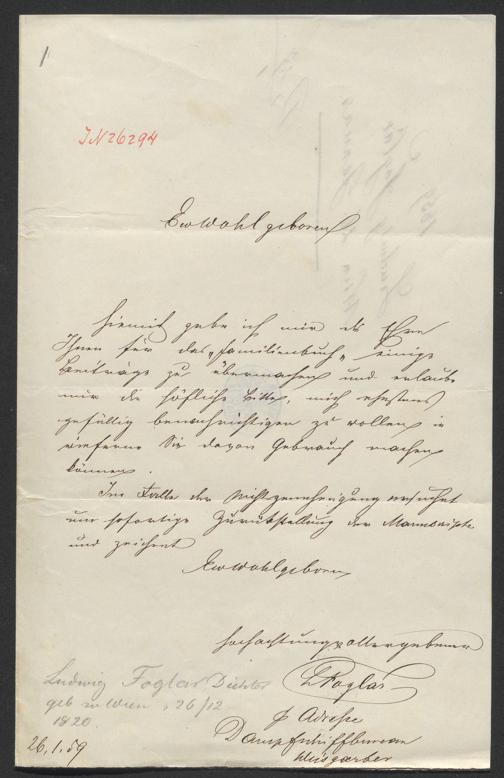 1
IN 26294
Euwohlgeboren
Hiemit gebe ich mir die Ehre
Ihnen für das „Familienbuch" einige
Beiträge zu übermachen und erlaube
mir die höfliche Bitte, mich ehestens
gefällig benachrichtigen zu wollen, in
wieferne Sie davon Gebrauch machen
können.
Im Falle der Nichtgenehmigung ersuchet
um sofortige Zurückstellung der Manuscripte
und zeichnet
Euwohlgeboren
hochachtungsvollergebener
LFoglar
Adresse
Dampfschiffbureau
Weisgärber
Ludwig Foglar Dichter
geb in Wien, 26/12
1820
26.1.59